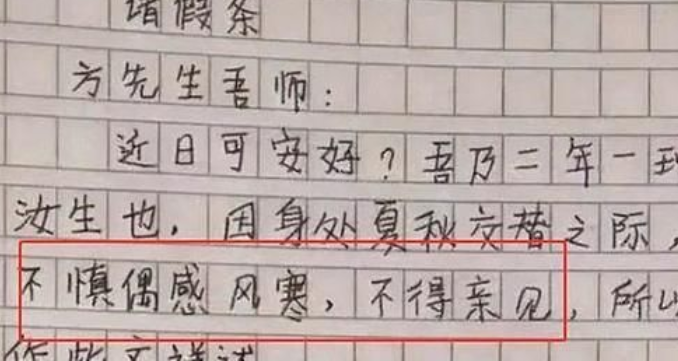 请假条
方先生吾师：
近日可安好？吾乃二年一班
汝生也，因身处夏秋交替之际，
不慎偶感风寒，不得亲见，所以
作此文详述